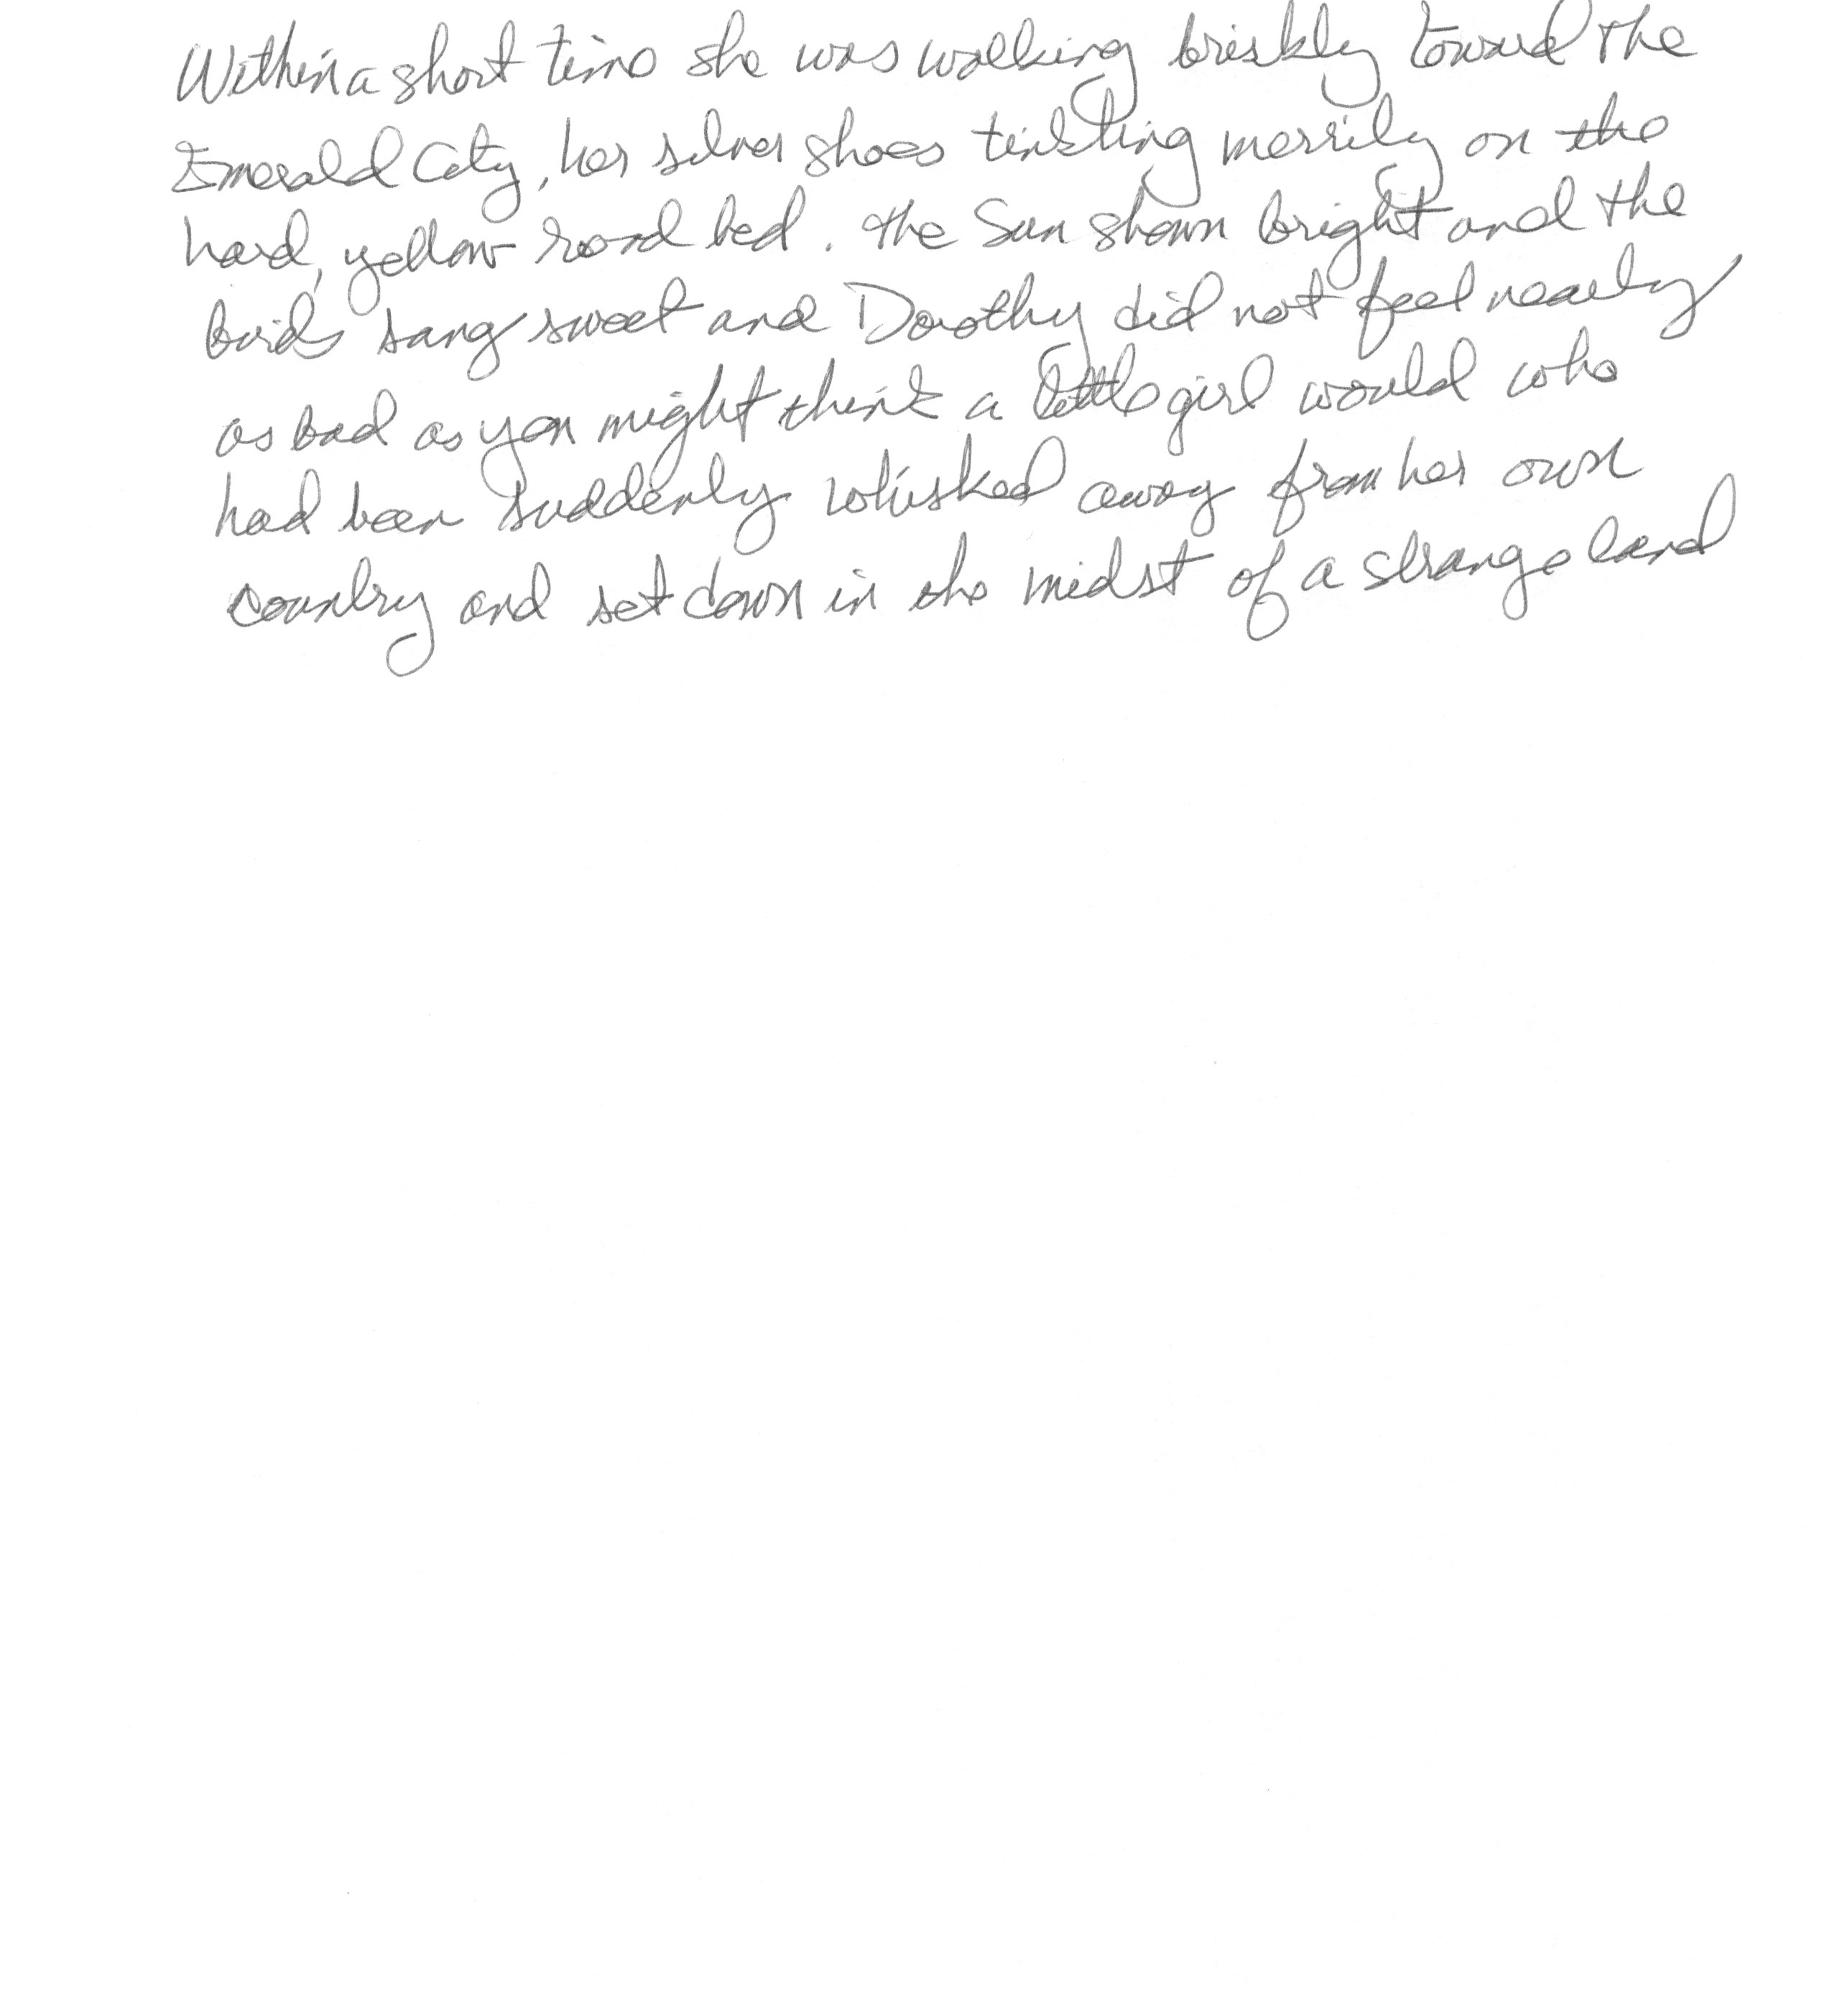 Within a short time she was walking briskly toward the
Emerald City, her silver shoes tinkling merrily on the
hard, yellow road bed. the Sun shown bright and the
birds sang sweet and Dorothy did not feel nearly
as bad as you might think a little girl would who
had been suddenly whisked away from her own
country and set down in the midst of a strange land